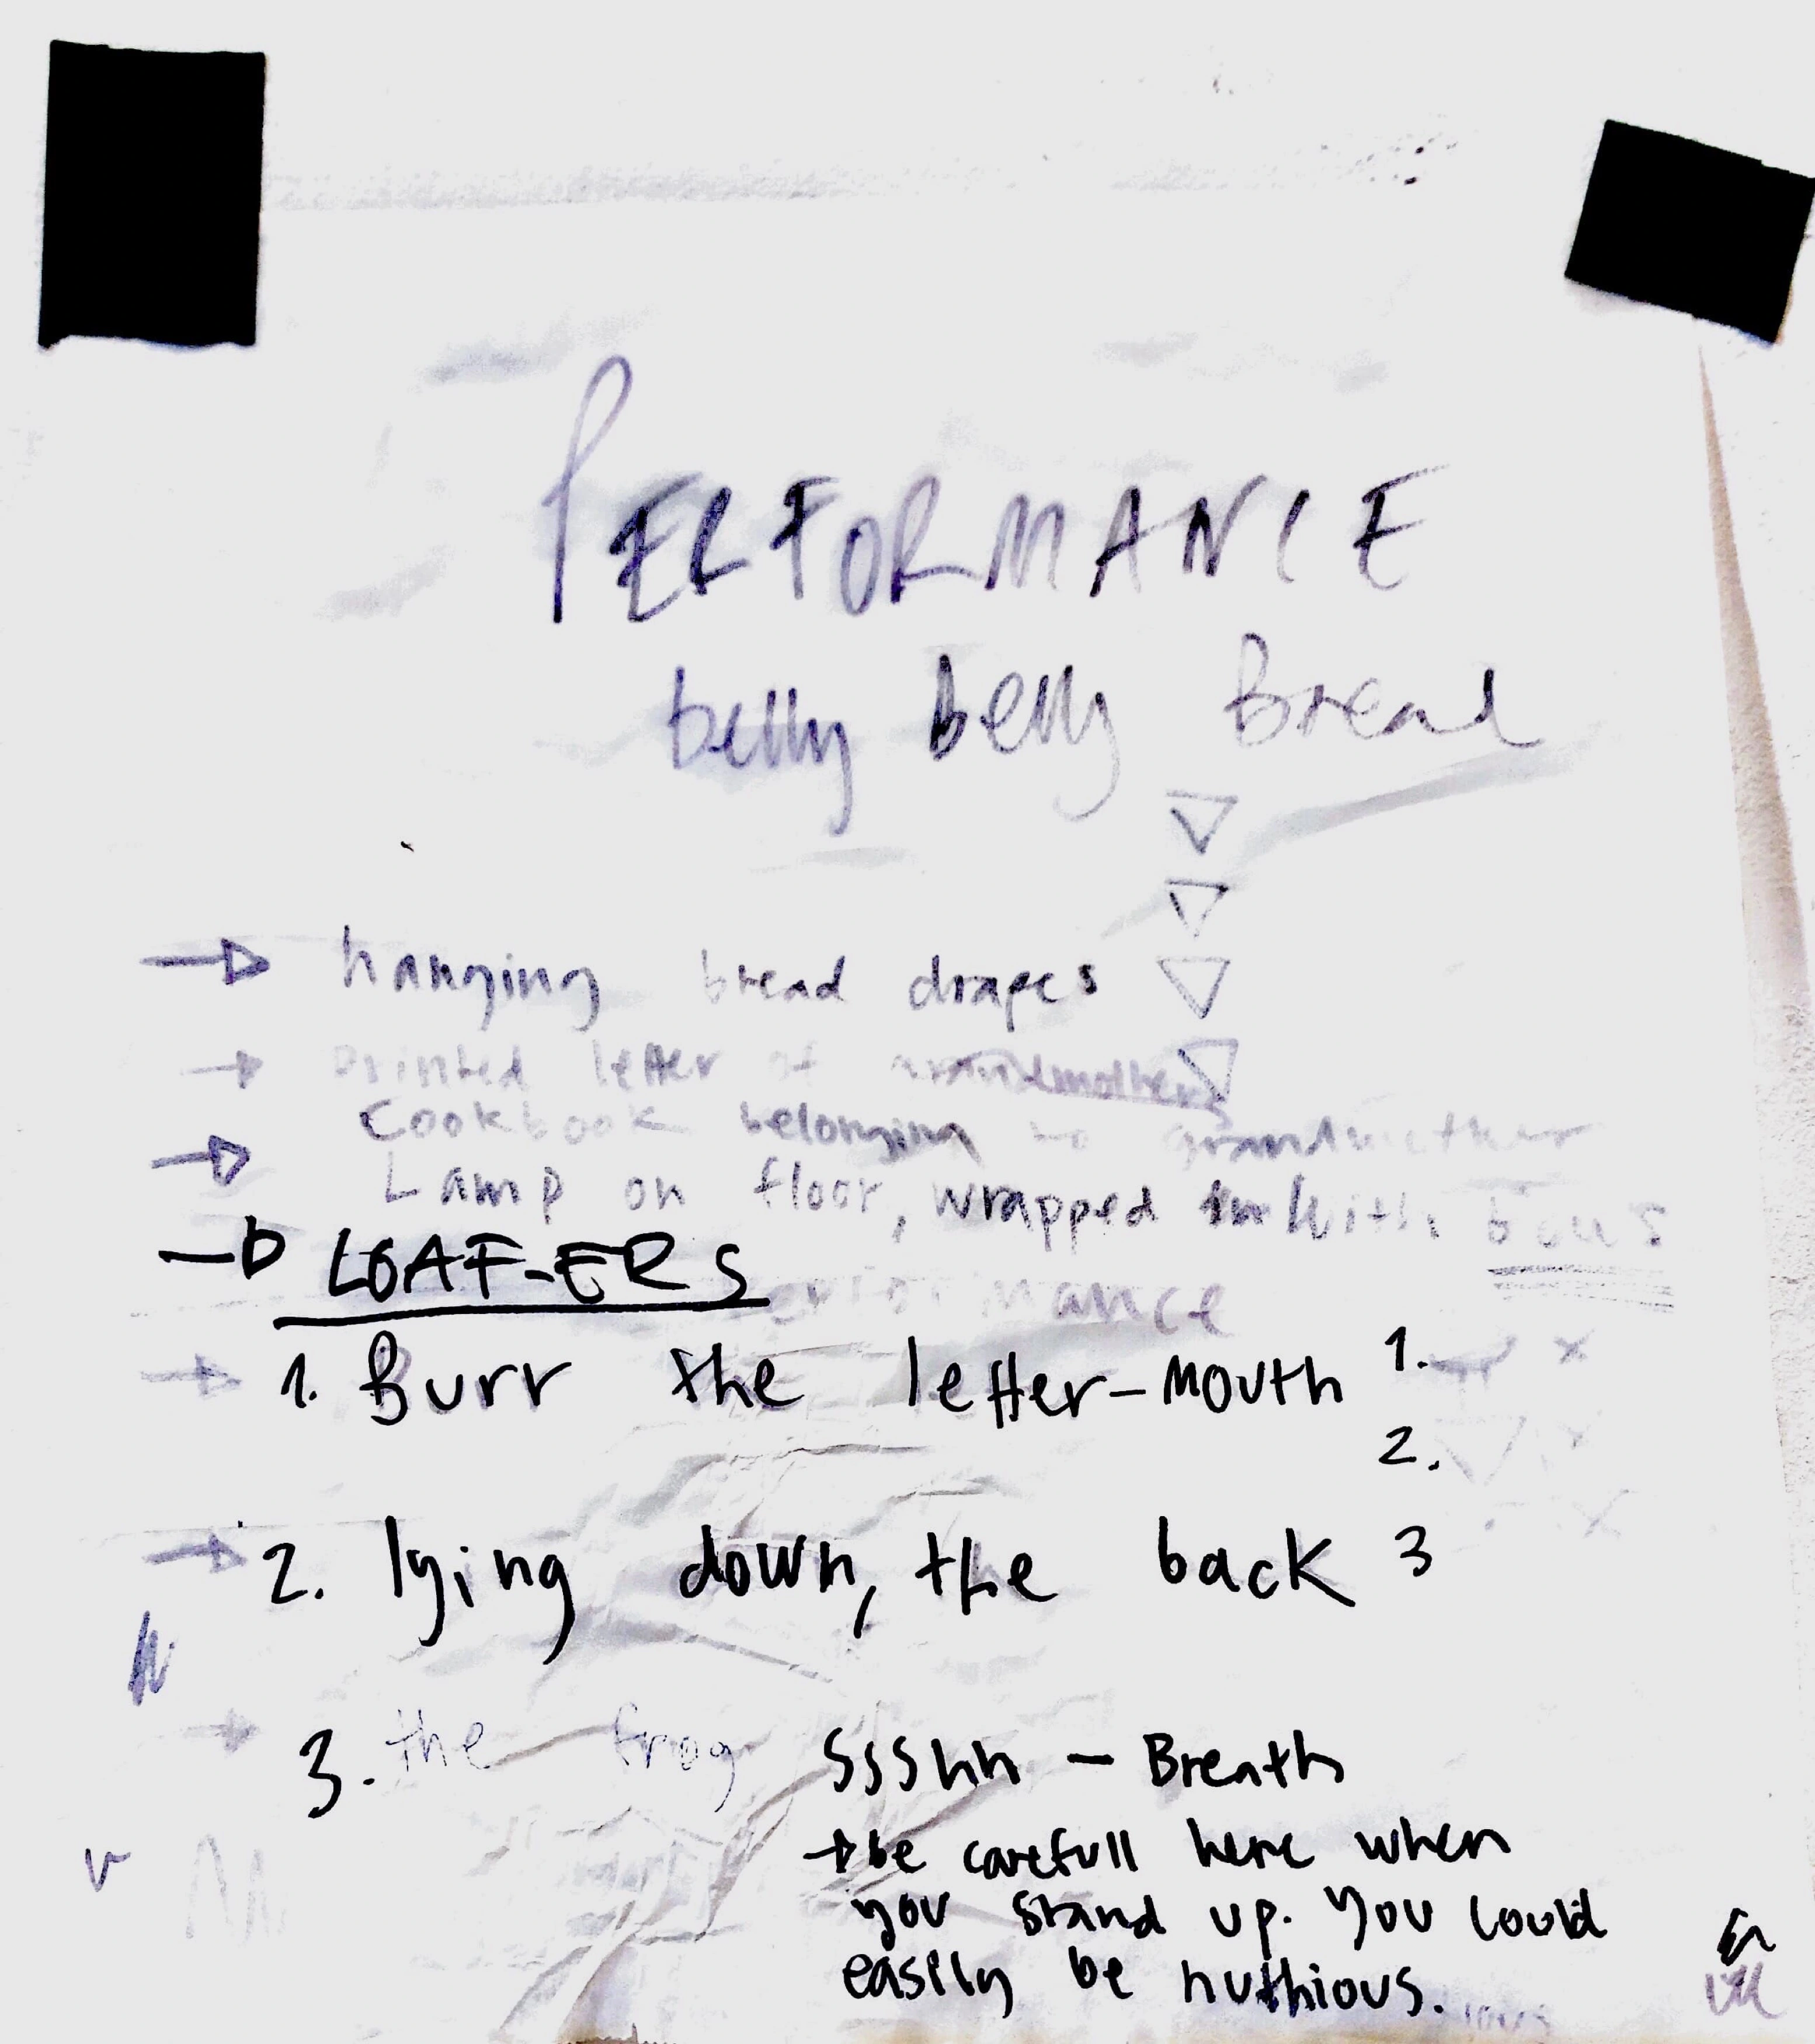 PERFORMANCE
belly belly Bread
hanging bread drapes
Printed letter of grandmothers
Cookbook belonging to grandmother
Lamp on floor, wrapped with
LOAF-ERS
performance
1. Burr the letter-mouth 1.
2.
2. lying down, the back 3
3. the frog Ssshh - Breath
be carefull here when
you stand up. You could
easily be huthious.